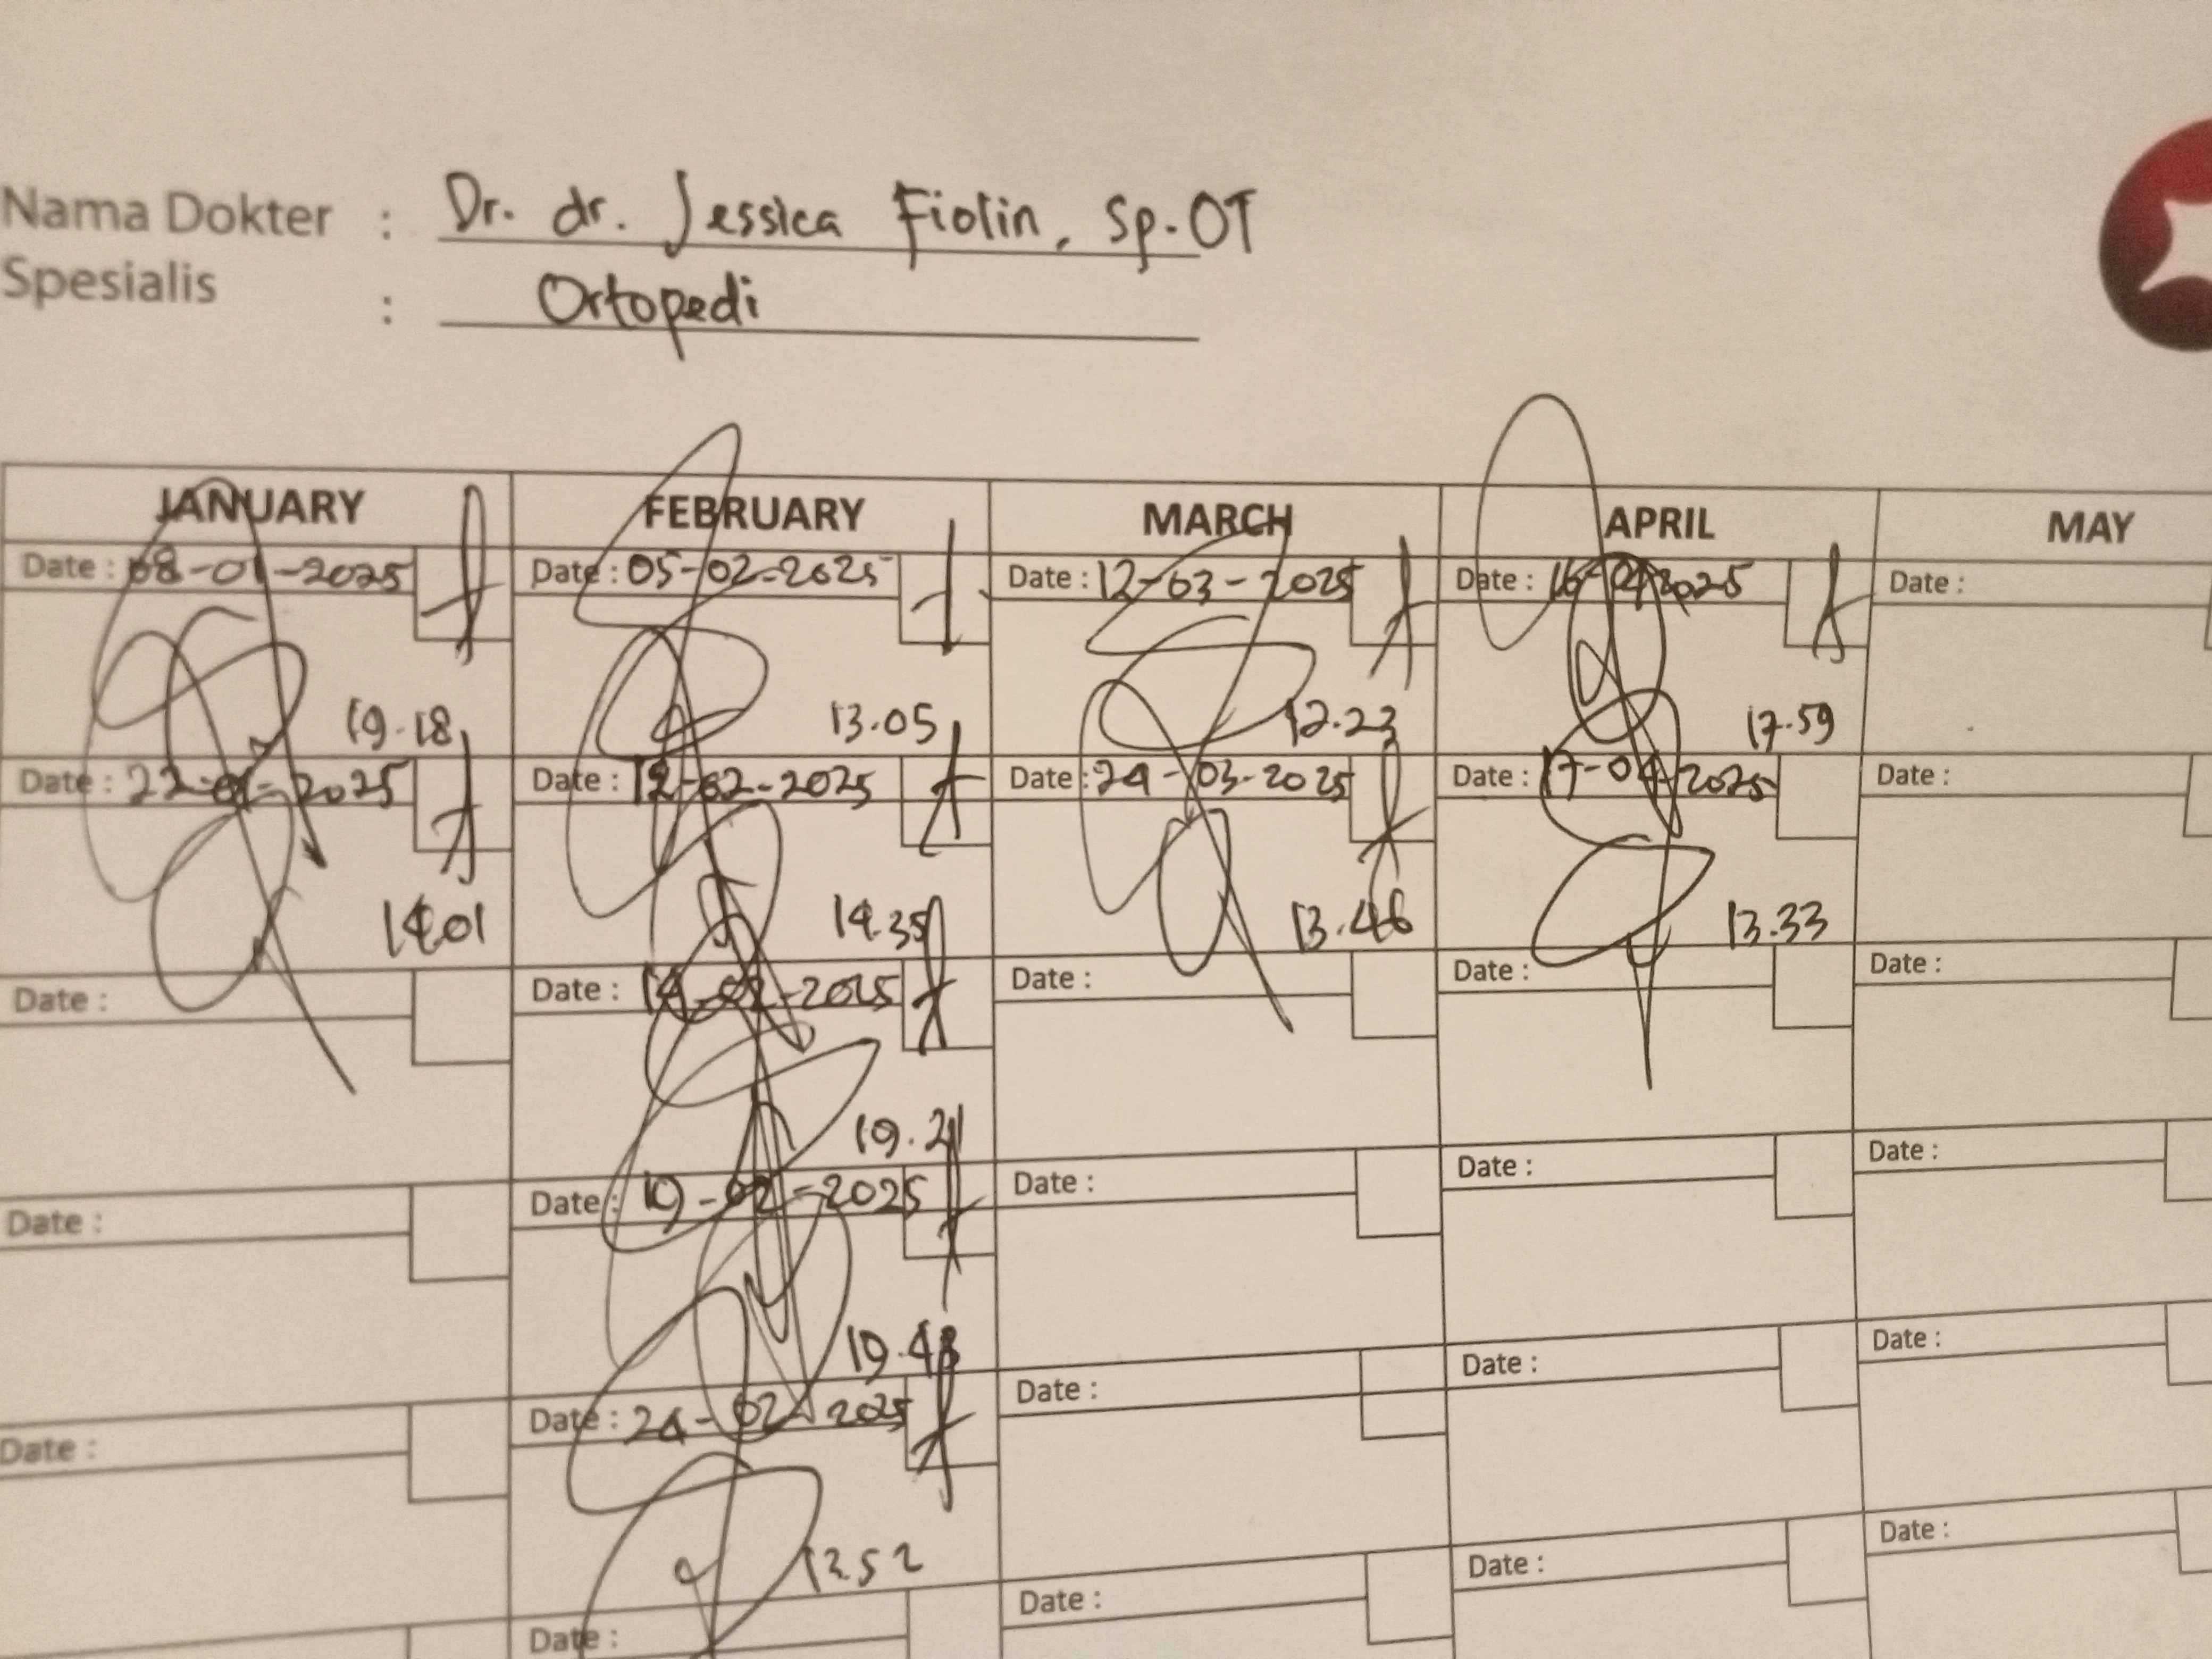 Nama Dokter : Dr. dr. Jessica Fiolin, Sp.OT
Spesialis : Ortopedi
JANUARY FEBRUARY MARCH APRIL MAY
Date : 08-01-2025 Date : 05-02-2025 Date : 12-03-2025 Date : 16-04-2025 Date :
19.18 13.05 12.23 17.59
Date : 22-01-2025 Date : 12-02-2025 Date : 24-03-2025 Date : 17-04-2025 Date :
14.01 14.35 13.46 13.33
Date : Date : 14-02-2025 Date : Date : Date :
19.21
Date : Date : 19-02-2025 Date : Date : Date :
19.48
Date : Date : 24-02-2025 Date : Date : Date :
13.52
Date : Date : Date : Date :